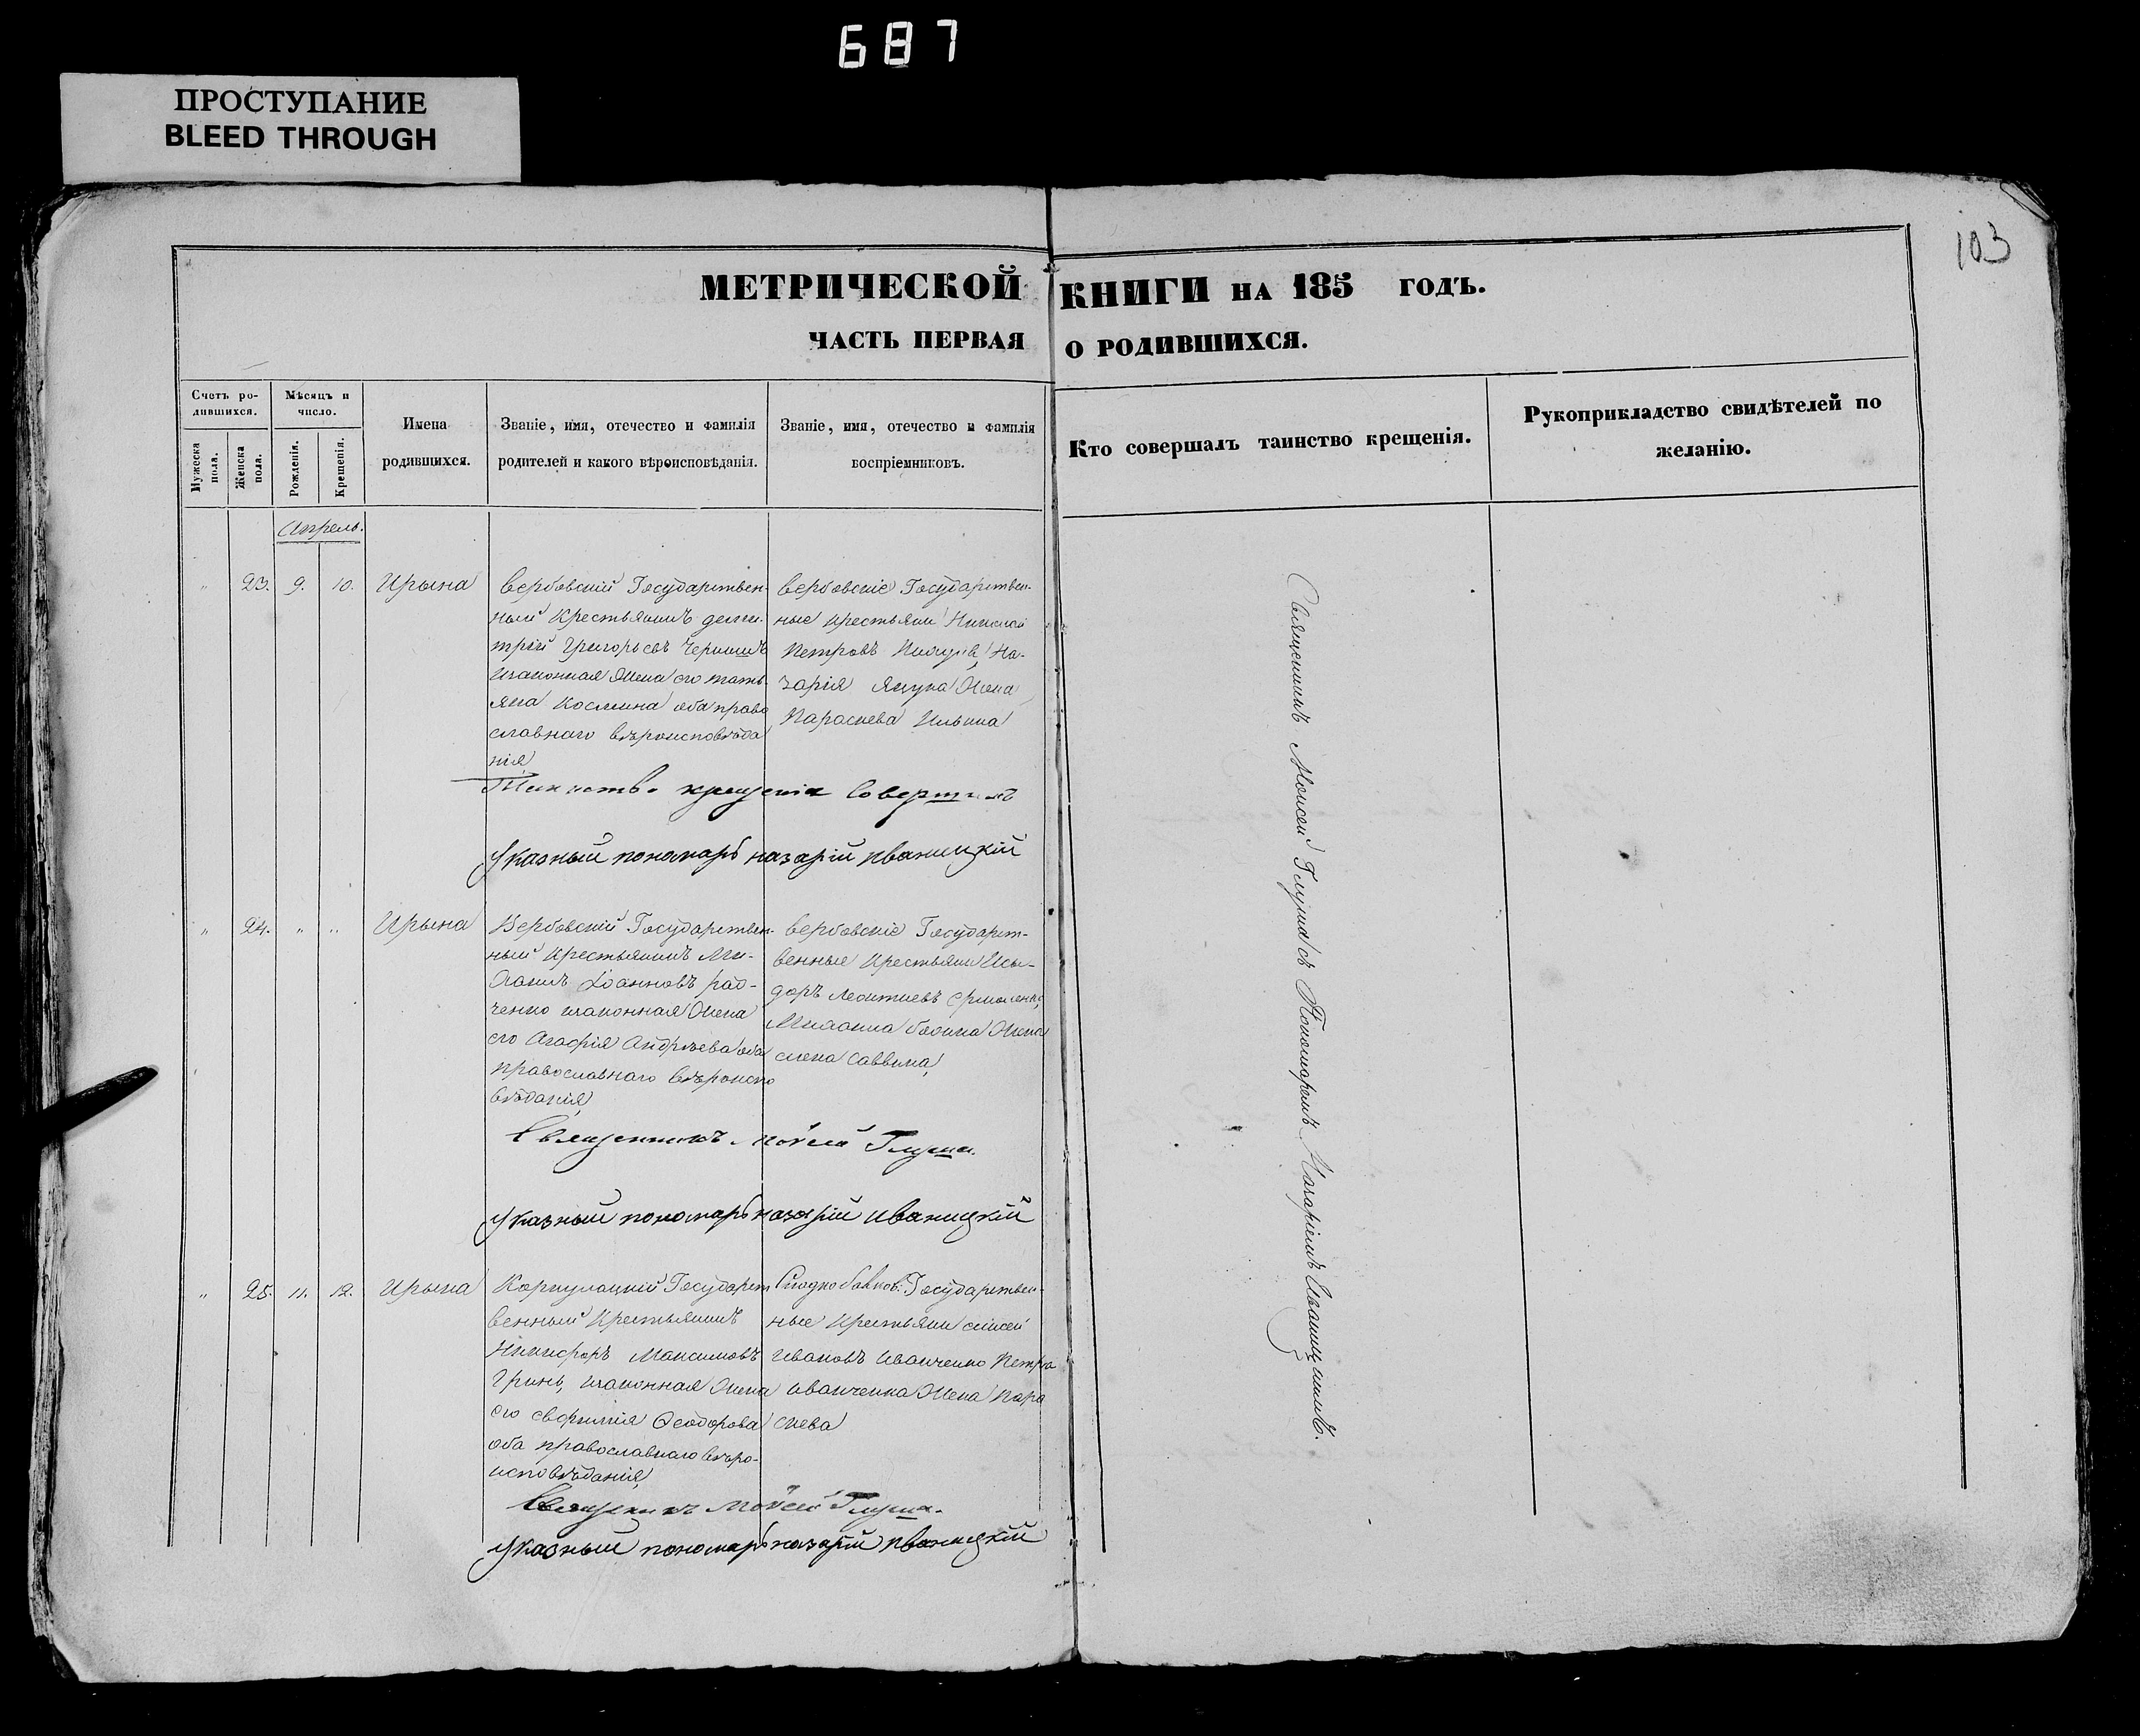 687
ПРОСТУПАНИЕ
BLEED THROUGH
103
МЕТРИЧЕСКОЙ КНИГИ НА 185 ГОДЪ.
ЧАСТЬ ПЕРВАЯ О РОДИВШИХСЯ.
Счетъ ро-
дившихся.
Мѣсяцъ и
число.
Мужеска
пола.
Женска
пола.
Рожденія.
Крещенія.
Имена
родившихся.
Званіе, имя, отечество и фамилія
родителей и какого вѣроисповѣданія.
Званіе, имя, отечество и фамилія
воспріемниковъ.
Кто совершалъ таинство крещенія.
Рукоприкладство свидѣтелей по
желанію.
Апрель.
" 23. 9. 10. Ирына
Вербовскій Государствен-
ный Крестьянинъ Дими-
трій Григорьевъ
изаконная Жена его Тать-
яна Космина оба право
славнаго вѣроисповѣда
нія
Вербовскіе Государствен-
ные крестьяни Николай
Петровъ На-
зарія Яцука Жена
Параскева Ильина
Таинство крещенія Совершилъ
Указный пономарь назарій иваницкій
" 24. " " Ирына
Вербовскій Государствен-
ный Крестьянинъ Ми-
хаилъ Іоанновъ Рад-
ченко изаконная Жена
его Агафія Андрѣева оба
православнаго вѣроиспо
вѣданія
Вербовскіе Государст-
венные Крестьяни Иси-
доръ Леонтиевъ Ермоленко,
Михаила Жена
Саввина
Священникъ Мойсей Глуша.
указный пономарь назарій иваницкій
" 25. 11. 12. Ирына
Государст
венный Крестьянинъ
Никифоръ Максимовъ
Гринь, изаконная Жена
его Евфимія Ѳеодорова
оба православнаго вѣро-
исповѣданія
Государствен-
ные Крестьяни
Ивановъ Иванченко Петра
Иванченка Жена Пара
скева
Священникъ Мойсей Глуша.
указный пономарь назарій иваницкій
Священникъ Моисей Глуша съ Пономаремъ Назаріемъ Иваницкимъ.